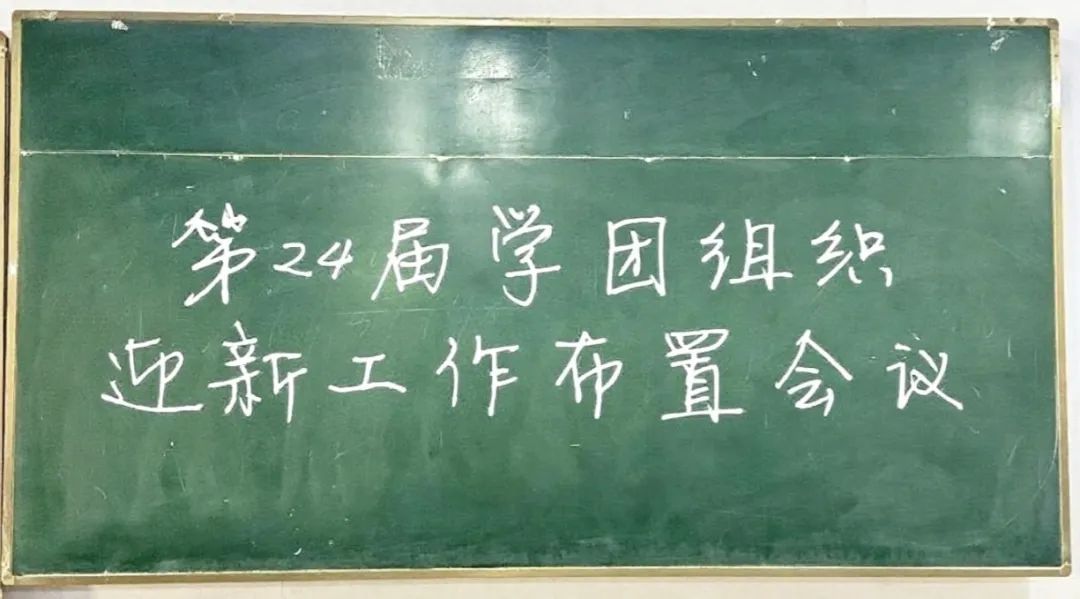 第24届学团组织
迎新工作布置会议